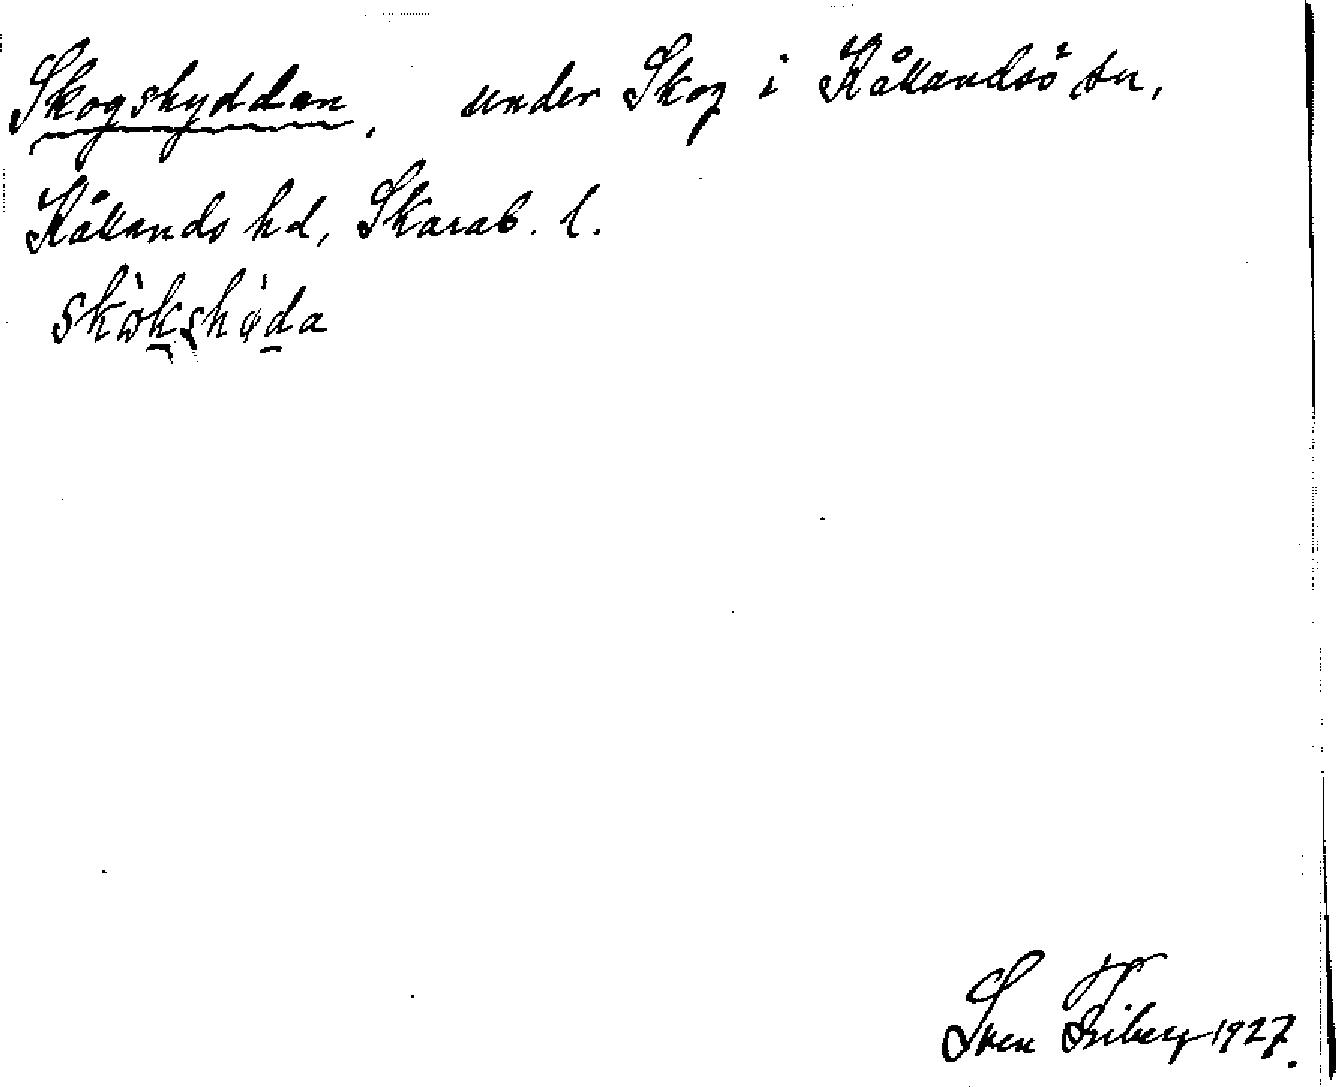 Skogshyddan, under Skog i Kållandsö sn,
Kållands hd, Skarab. l.
skòkshø̀da
Sven Friberg 1927.